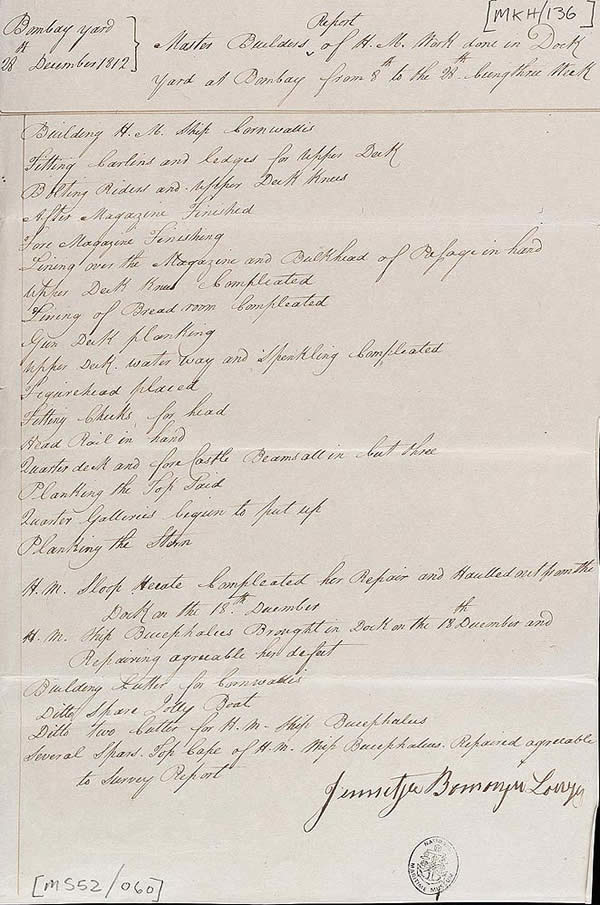 [MKH/136]
Bombay yard
28th December 1812
Report
Master Builders of H. M. Work done in Dock
yard at Bombay from 8th to the 28th being three Week
Building H. M. Ship Cornwallis
Fitting Carlins and Ledges for Upper Deck
Bolting Riders and Upper Deck Knees
After Magazine Finished
Fore Magazine Finishing
Lining over the Magazine and Bulkhead of Passage in hand
Upper Deck Knees Compleated
Lining of Bread room Compleated
Gun Deck planking
Upper Deck water way and Spenkling Compleated
Figurehead placed
Fitting Cheeks for head
Head Rail in hand
Quarter deck and fore Castle Beams all in but three
Planking the Top
Quarter Galleries begun to put up
Planking the Stern
H. M. Sloop Hecate Compleated her Repair and Haulled out from the
Dock on the 18th December
H. M. Ship Bucephalus Brought in Dock on the 18th December and
Repairing agreeable her defect
Building Cutter for Cornwallis
Ditto Spare Jolly Boat
Ditto two Cutter for H. M. Ship Bucephalus
Several Spars. Top Cape of H. M. Ship Bucephalus. Repaired agreeable
to Survey Report
Jemsetjee Bomonjee
NATIONAL MARITIME MUSEUM
[MS52/060]